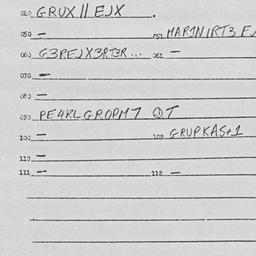 040 GRUX || EJX .
050 — 051 MAR1N1RT3 EJ
060 G3REJX3RT3R... 061 —
070 —
080 —
090 PE4RLGROPM7
100 — 109 GRUPKAS+1
110 —
111 — 112 —